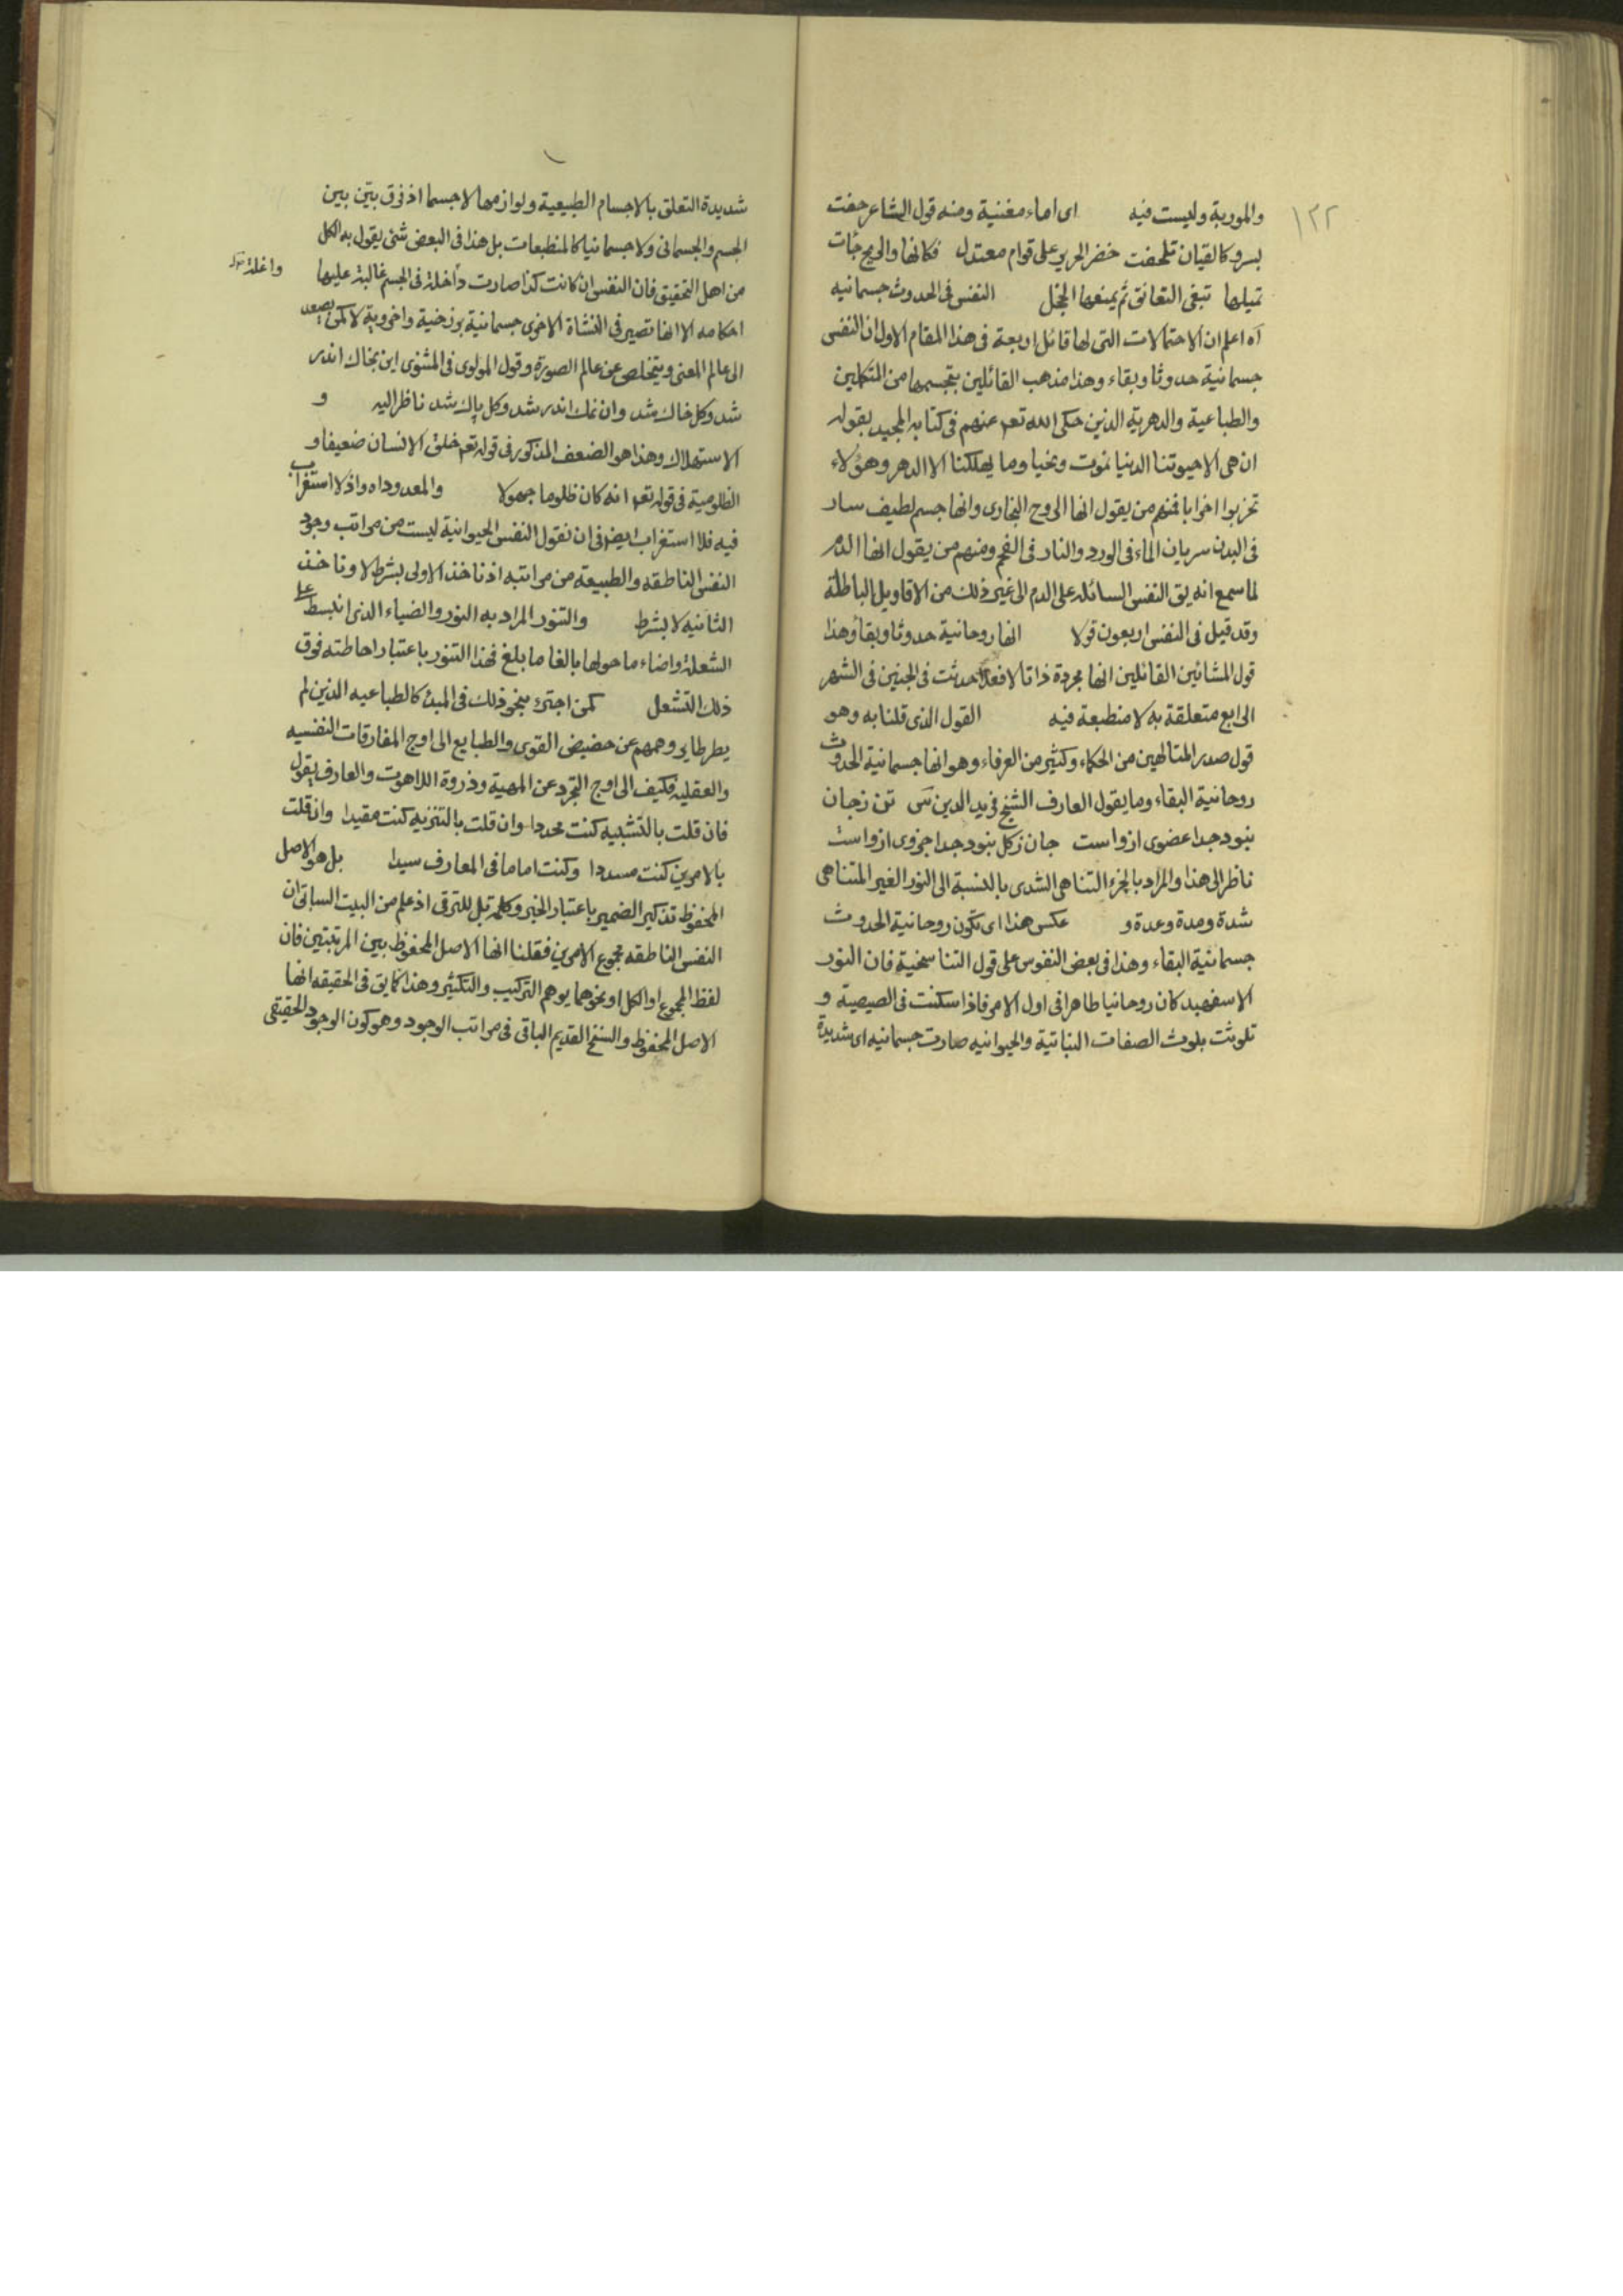 ١٢٢
والمورية وليست فيه اى اماء مغنية ومنه قول الشاعر حفت
بسرو كالقيان تلحفت خضر الحرير على قوام معتدل فكانها والريح جائت
تميلها تبغى التعانق ثم يمنعها الخجل النفس فى الحدوث جسمانيه
آه اعلم ان الاحتمالات التى لها قائل اربعة فى هذا المقام الاول ان النفس
جسمانية حدوثا وبقاء وهذا مذهب القائلين بتجسمها من المتكلمين
والطباعية والدهرية الذين حكى الله تعم عنهم فى كتابه المجيد بقوله
ان هى الا حيوتنا الدنيا نموت ونحيا وما يهلكنا الا الدهر وهؤلاء
تحزبوا احزابا فمنهم من يقول انها الروح البخارى وانها جسم لطيف سار
فى البدن سريان الماء فى الورد والنار فى الفحم ومنهم من يقول انها الدم
لما سمع انه يق النفس السائله على الدم الى غير ذلك من الاقاويل الباطلة
وقد قيل فى النفس اربعون قولا انها روحانية حدوثا وبقاؤهذا
قول المشائين القائلين انها مجردة ذاتا لا فعلا حدثت فى الجنين فى الشهر
الرابع متعلقة به لا منطبعة فيه القول الذى قلنا به وهو
قول صدر المتالهين من الحكماء وكثير من العرفاء وهو انها جسمانية الحدوث
روحانية البقاء وما يقول العارف الشيخ فريد الدين س تن زجان
نبود جدا عضوى ازواست جان زكل نبود جدا جزوى ازواست
ناظر الى هذا والمراد بالجزء التناهى الشدى بالنسبة الى النور الغير المتناهى
شدة ومدة وعدة و عكس هذا اى تكون روحانية الحدوث
جسمانية البقاء وهذا فى بعض النفوس على قول التناسخية فان النور
الاسفهبد كان روحانيا طاهرا فى اول الامر فاذا سكنت فى الصيصية و
تلوثت بلوث الصفات النباتية والحيوانيه صارت جسمانيه اى شديدة
شديدة التعلق بالاجسام الطبيعية ولوازمها لا جسما اذ فرق بين بين
الجسم والجسمانى ولا جسمانيا كالمنطبعات بل هذا فى البعض شئ يقول به الكل
من اهل التحقيق فان النفس ان كانت كذا صارت داخلة فى الجسم غالبة عليها
احكامه الا انها تصير فى النشاة الاخرى جسمانية برزخية واخروية لا كمن يصعد
الى عالم المعنى ويتخلص عن عالم الصورة وقول المولوى فى المثنوى اين بخاك اندر
شد وكل خاك شد وان نمك اندر شد وكل پاك شد ناظر اليه و
الاستهلاك وهذا هو الضعف المذكور فى قوله تعم خلق الانسان ضعيفا و
الظلومية فى قوله تعم انه كان ظلوما جهولا والمعدوداه واذ لا استغراب
فيه فلا استغراب ايضا فى ان نقول النفس الحيوانية ليست من مراتب وجود
النفس الناطقه والطبيعة من مراتبه اذ ناخذ الاولى بشرط لا وناخذ
الثانيه لا بشرط والتنور المراد به النور والضياء الذى انبسط على
الشعلة واضاء ما حولها بالغا ما بلغ فهذا التنور باعتبار احاطته فوق
ذلك التشعل كمن اجترء بنحو ذلك فى المبدء كالطباعيه الذين لم
يطر طاير وهمهم عن حضيض القوى والطبايع الى اوج المفارقات النفسيه
والعقليه فكيف الى اوج التجرد عن المهية وذروة اللاهوت والعارف يقول
فان قلت بالتشبيه كنت محددا وان قلت بالتنزيه كنت مقيدا وان قلت
بالامرين كنت مسددا وكنت اماما فى المعارف سيدا بل هو الاصل
المحفوظ تذكير الضمير باعتبار الخبر وكلمة بل للترقى اذ علم من البيت السابق ان
النفس الناطقه مجموع الامرين فقلنا انها الاصل المحفوظ بين المرتبتين فان
لفظ المجموع او الكل او نحوهما يوهم التركيب والتكثير وهذا كما يق فى الحقيقه انها
الاصل المحفوظ والسنخ القديم الباقى فى مراتب الوجود وهو كون الوجود الحقيقى